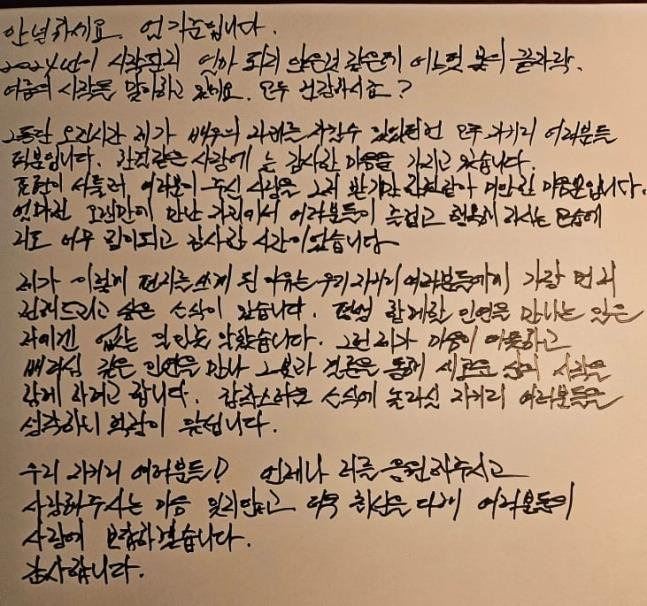 안녕하세요. 엄기준입니다.
2024년이 시작된지 얼마 되지 않은것 같은데 어느덧 봄의 끝자락.
여름의 시작을 맞이하고 있네요. 모두 건강하시죠?
그동안 오랜시간 제가 배우의 자리를 지킬수 있었던건 모두 자기지 여러분들
덕분입니다. 한결같은 사랑에 늘 감사한 마음을 가지고 있습니다.
표현이 서툴러, 여러분이 주신 사랑을 그저 받기만 한것같아 미안한 마음뿐입니다.
얼마전 오랜만에 만난 자리에서 여러분들이 즐겁고 행복해 하시는 모습에
저도 너무 힘이되고 감사한 시간이었습니다
제가 이렇게 편지를 쓰게 된 이유는 우리 자기지 여러분들께 가장 먼저
전해드리고 싶은 소식이 있습니다. 평생 함께할 인연을 만나는 일은
저에겐 없는 일인듯 살았습니다. 그런 제가 마음이 따뜻하고
배려심 깊은 인연을 만나 그분과 결혼을 통해 새로운 삶의 시작을
함께 하려고 합니다. 갑작스러운 소식에 놀라실 자기지 여러분들을
생각하니 걱정이 앞섭니다.
우리 자기지 여러분들! 언제나 저를 응원해주시고
사랑해주시는 마음 잊지않고 더욱 최선을 다해 여러분들의
사랑에 보답하겠습니다.
감사합니다.